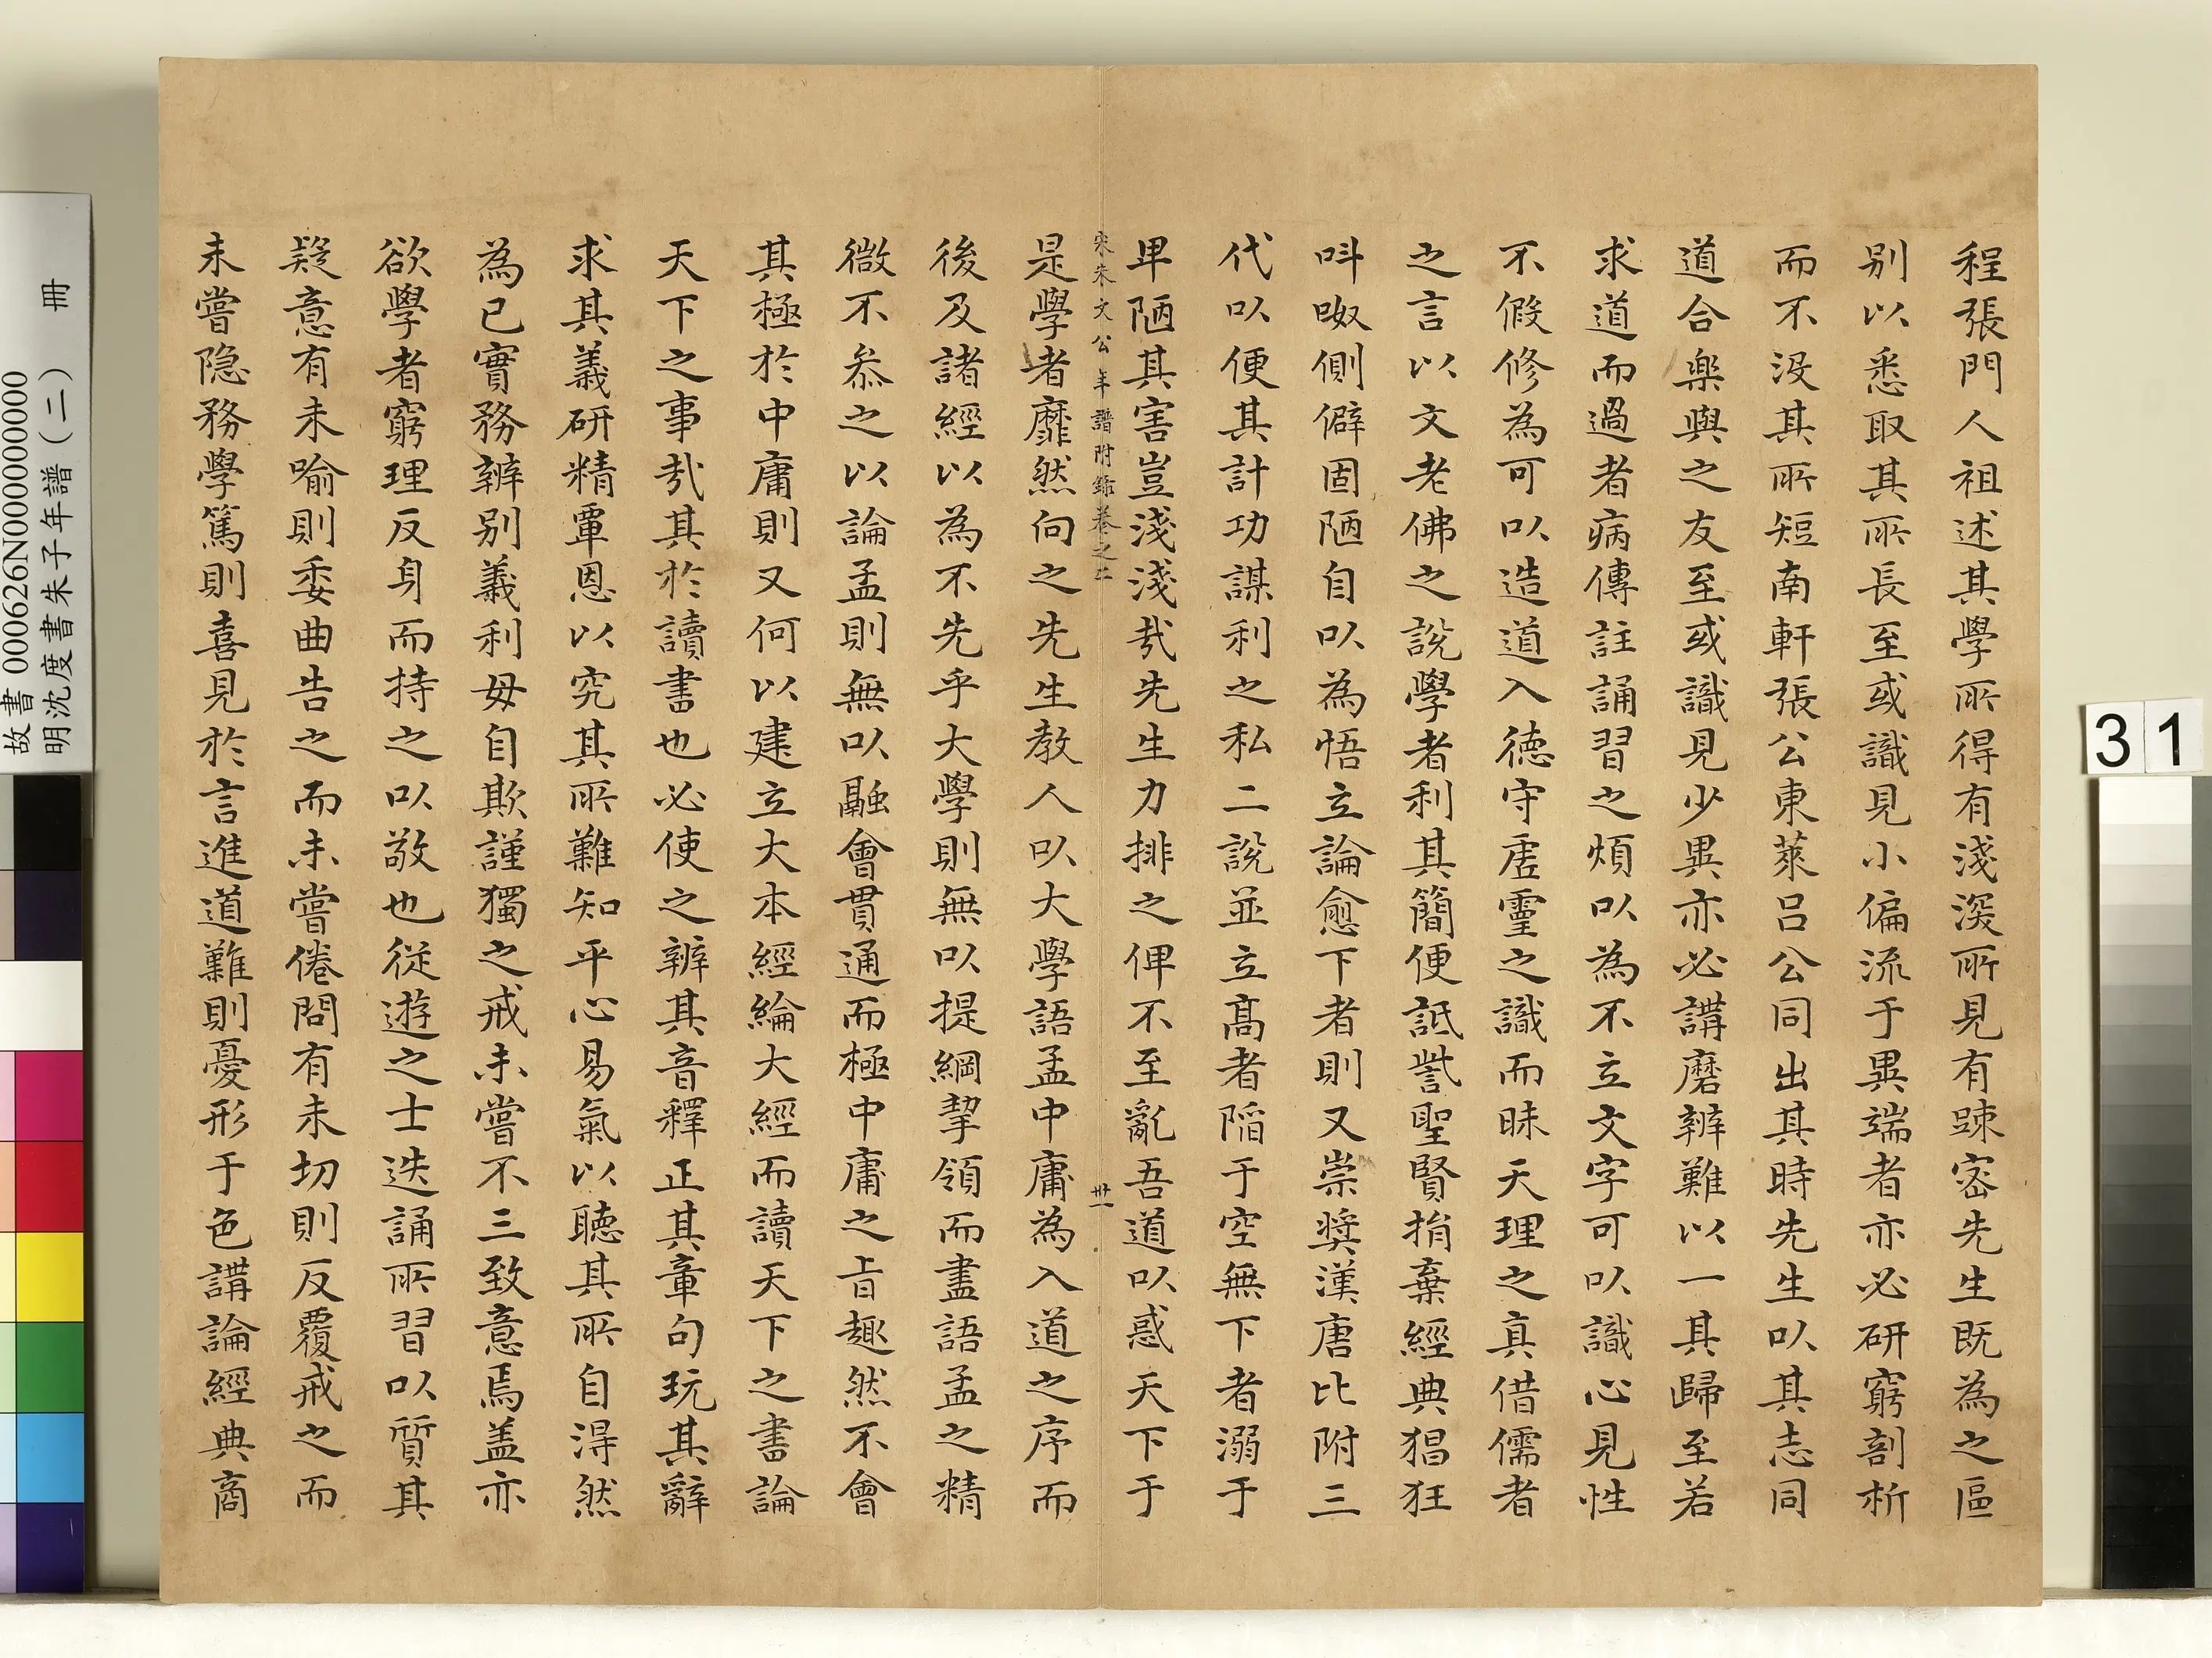 程張門人祖述其學所得有淺深所見有疎密先生既為之區
别以悉取其所長至或識見小偏流于異端者亦必研窮剖析
而不沒其所短南軒張公東萊呂公同出其時先生以其志同
道合樂與之友至或識見少異亦必講磨辨難以一其歸至若
求道而過者病傳註誦習之煩以為不立文字可以識心見性
不假修為可以造道入德守虗靈之識而昧天理之真借儒者
之言以文老佛之說學者利其簡便詆訾聖賢捐棄經典猖狂
呌呶側僻固陋自以為悟立論愈下者則又崇奬漢唐比附三
代以便其計功謀利之私二說並立高者陷于空無下者溺于
卑陋其害豈淺淺哉先生力排之俾不至亂吾道以惑天下于
宋朱文公年譜附錄卷之二
卅一
是學者靡然向之先生教人以大學語孟中庸為入道之序而
後及諸經以為不先乎大學則無以提綱挈領而盡語孟之精
微不叅之以論孟則無以融會貫通而極中庸之旨趣然不會
其極於中庸則又何以建立大本經綸大經而讀天下之書論
天下之事哉其於讀書也必使之辨其音釋正其章句玩其辭
求其義研精覃思以究其所難知平心易氣以聽其所自淂然
為己實務辨别義利毋自欺謹獨之戒未嘗不三致意焉盖亦
欲學者窮理反身而持之以敬也從遊之士迭誦所習以質其
疑意有未喻則委曲告之而未嘗倦問有未切則反覆戒之而
未嘗隐務學篤則喜見於言進道難則憂形于色講論經典商
故書 000626N000000000
明沈度書朱子年譜（二） 冊
31